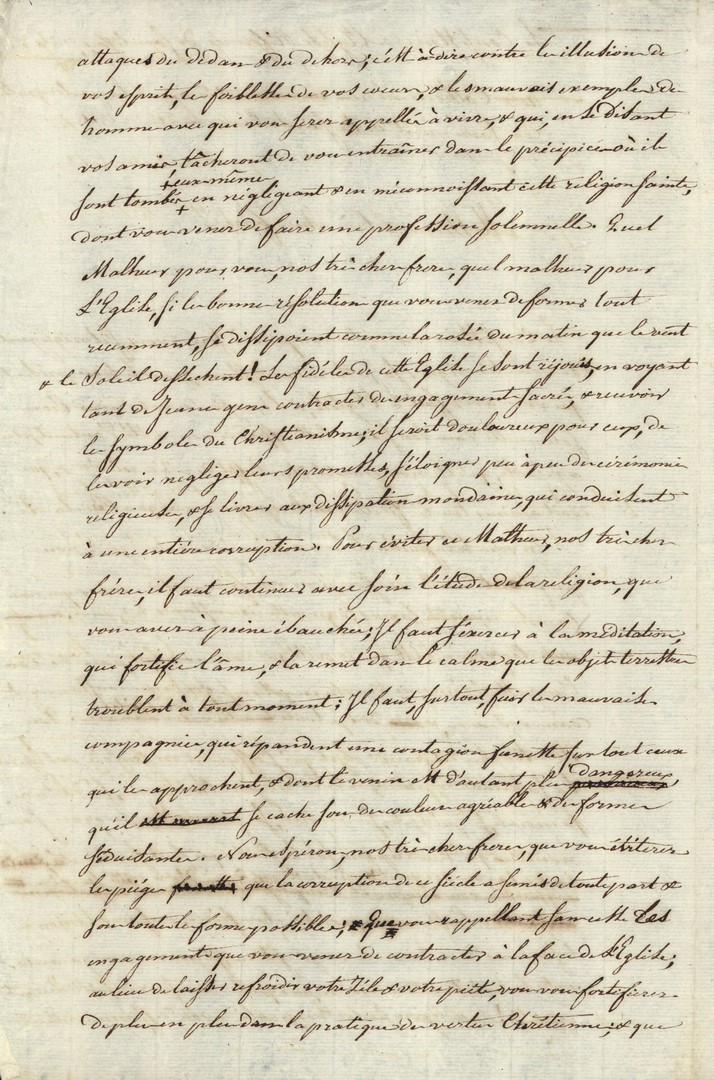 attaques du dedans & du dehors; c'est à dire contre les illusions de
vos esprits, les foiblesses de vos cœurs, & les mauvais exemples des
hommes avec qui vous serez appellés à vivre, & qui, en se disant
vos amis tâcheront de vous entraîner dans le précipice où ils
+ eux-mêmes
sont tombés + en négligeant & en méconnoissant cette religion sainte,
dont vous venez de faire une profession solemnelle. Quel
Malheur pour vous, nos très chers freres, quel malheur pour
L'Eglise, si les bonnes résolutions que vous venez de former tout
récemment, se dissipoient comme la rosée du matin que le vent
& le Soleil dessechent! Les fidéles de cette Eglise se sont réjouis, en voyant
tant de Jeunes gens contracter des engagemens sacrés, & recevoir
les symboles du Christianisme; il seroit douloureux pour eux, de
les voir negliger leurs promesses, s'éloigner peu à peu des cérémonies
religieuses, & se livrer aux dissipations mondaines, qui conduisent
à une entière corruption. Pour éviter ce Malheur, nos très chers
fréres, il faut continuer avec soin l'étude de la religion, que
vous avez à peine ébauchée; Il faut s'éxercer à la méditation,
qui fortifie l'âme, & la remet dans le calme que les objets terrestres
troublent à tout moment; Il faut, surtout, fuir les mauvaises
compagnies, qui répandent une contagion funeste sur tout ceux
qui les approchent, & dont le venin est d'autant plus dangereux,
qu'il se cache sous des couleurs agréables & des formes
séduisantes. Nous espérons, nos très chers freres, que vous éviterez
les piéges que la corruption de ce siécle a semés de toute part &
sous toutes les formes possibles; & que vous rappellant sans cesse les
engagemens que vous venez de contracter à la face de l'Eglise;
au lieu de laisser refroidir votre Zéle & votre piété, vous vous fortifierez
de plus en plus dans la pratique des vertus Chrétiennes; & que